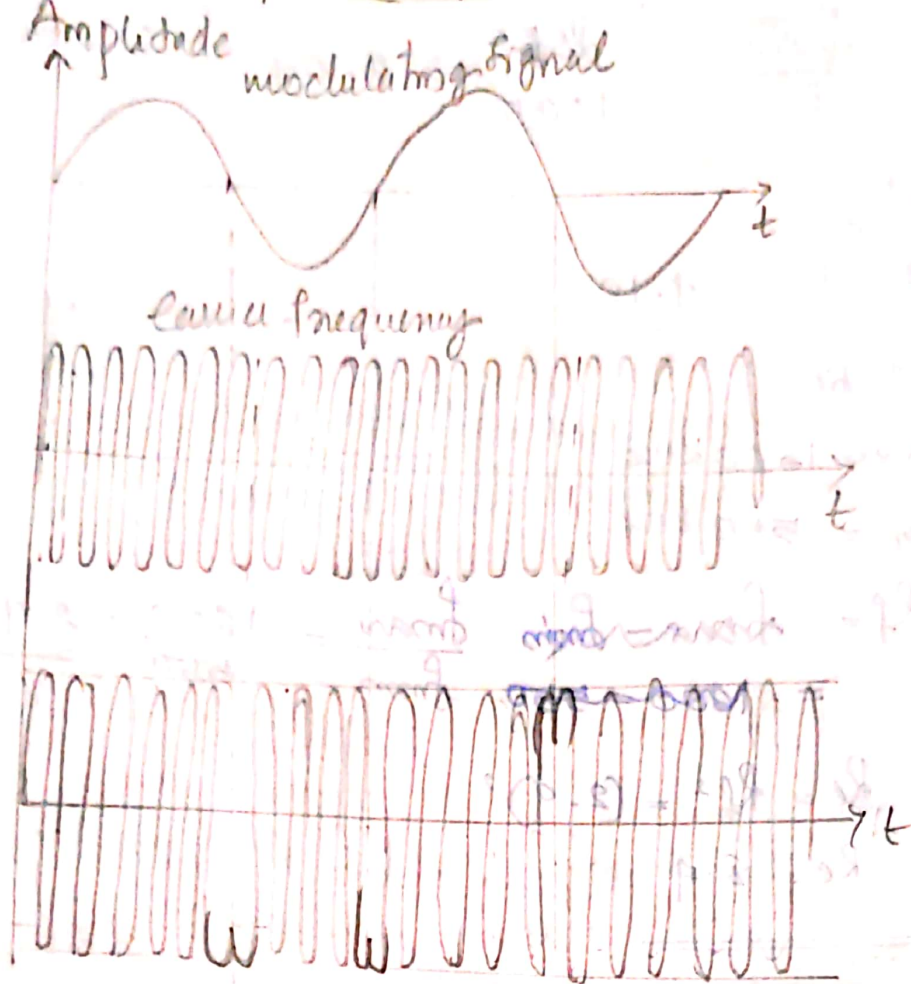 Amplitude
modulating Signal
t
Carrier frequency
t
t